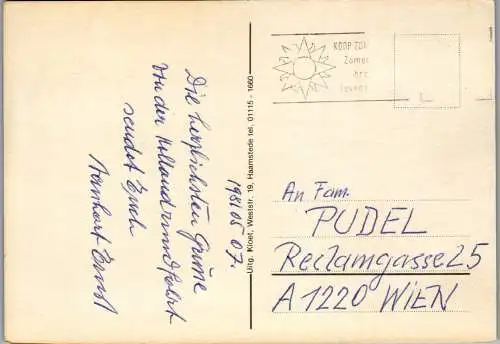 Die herzlichsten Grüße
von der Hollandrundfahrt
sendet Euch
Ernst
1981 05 07.
Uitg. Kloet, Weststr. 19, Haamstede tel. 01115 - 1660
KOOP ZOM
Zomer
An Fam.
PUDEL
Reclamgasse 25
A 1220 WIEN